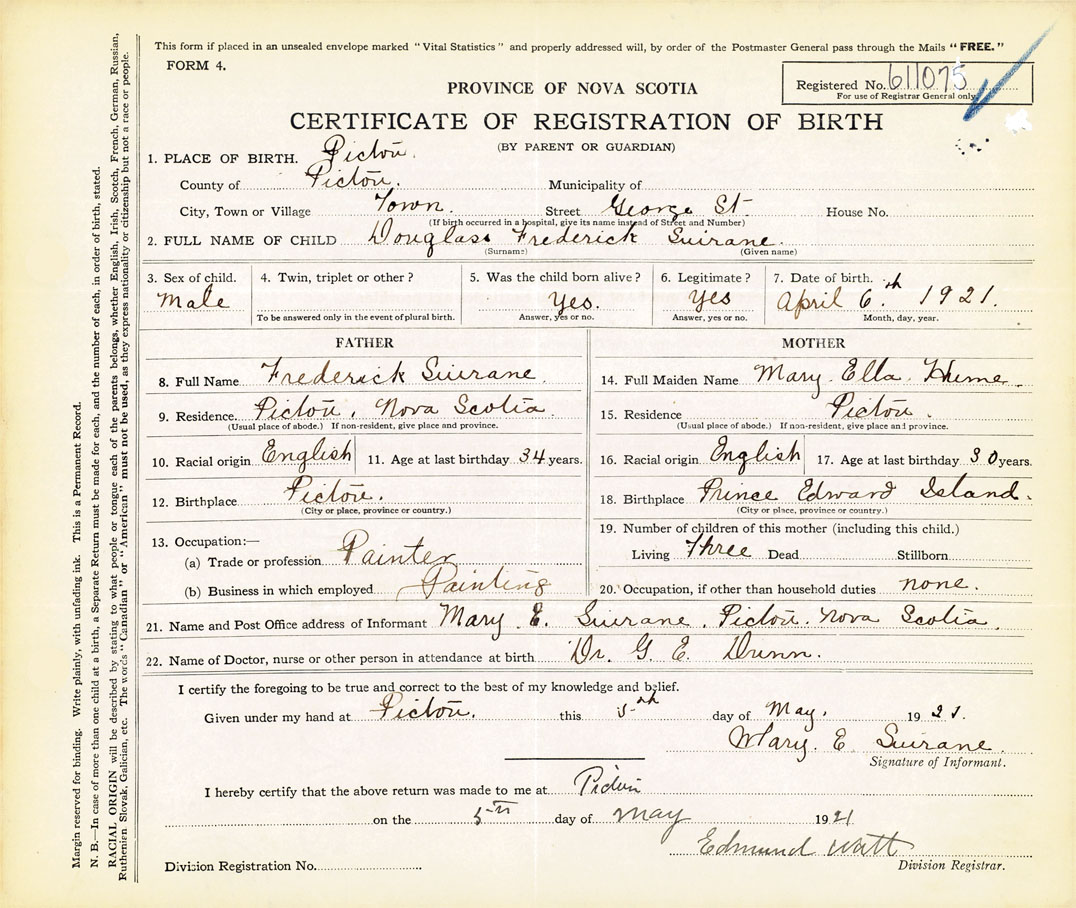 This form if placed in an unsealed envelope marked "Vital Statistics" and properly addressed will, by order of the Postmaster General pass through the Mails "FREE."
FORM 4.
Registered No. 611075
For use of Registrar General only.
PROVINCE OF NOVA SCOTIA
CERTIFICATE OF REGISTRATION OF BIRTH
(BY PARENT OR GUARDIAN)
1. PLACE OF BIRTH. Pictou.
County of Pictou. Municipality of
City, Town or Village Town. Street George St. House No.
(If birth occurred in a hospital, give its name instead of Street and Number)
2. FULL NAME OF CHILD Douglass Frederick Suirane.
(Surname) (Given name)
3. Sex of child. 4. Twin, triplet or other? 5. Was the child born alive? 6. Legitimate? 7. Date of birth.
Male Yes. Yes April 6th. 1921.
To be answered only in the event of plural birth. Answer, yes or no. Answer, yes or no. Month, day, year.
FATHER
8. Full Name Frederick Suirane.
9. Residence. Pictou, Nova Scotia.
(Usual place of abode.) If non-resident, give place and province.
10. Racial origin English 11. Age at last birthday 34 years.
12. Birthplace Pictou.
(City or place, province or country.)
13. Occupation:—
(a) Trade or profession Painter
(b) Business in which employed Painting
MOTHER
14. Full Maiden Name Mary. Ella. Hume.
15. Residence Pictou.
(Usual place of abode.) If non-resident, give place and province.
16. Racial origin English 17. Age at last birthday 30 years.
18. Birthplace Prince Edward Island.
(City or place, province or country.)
19. Number of children of this mother (including this child.)
Living Three Dead Stillborn
20. Occupation, if other than household duties none.
21. Name and Post Office address of Informant Mary. E. Suirane. Pictou. Nova Scotia.
22. Name of Doctor, nurse or other person in attendance at birth Dr. G. E. Dunn.
I certify the foregoing to be true and correct to the best of my knowledge and belief.
Given under my hand at Pictou. this 5th day of May. 1921.
Mary. E Suirane.
Signature of Informant.
I hereby certify that the above return was made to me at Pictou
on the 5th day of May 1921
Edmund Watt
Division Registration No. Division Registrar.
Margin reserved for binding. Write plainly, with unfading ink. This is a Permanent Record.
N. B.—In case of more than one child at a birth, a Separate Return must be made for each, and the number of each, in order of birth, stated.
RACIAL ORIGIN will be described by stating to what people or tongue each of the parents belongs, whether English, Irish, Scotch, French, German, Russian,
Ruthenian, Slovak, Galician, etc. The words "Canadian" or "American" must not be used, as they express nationality or citizenship but not a race or people.